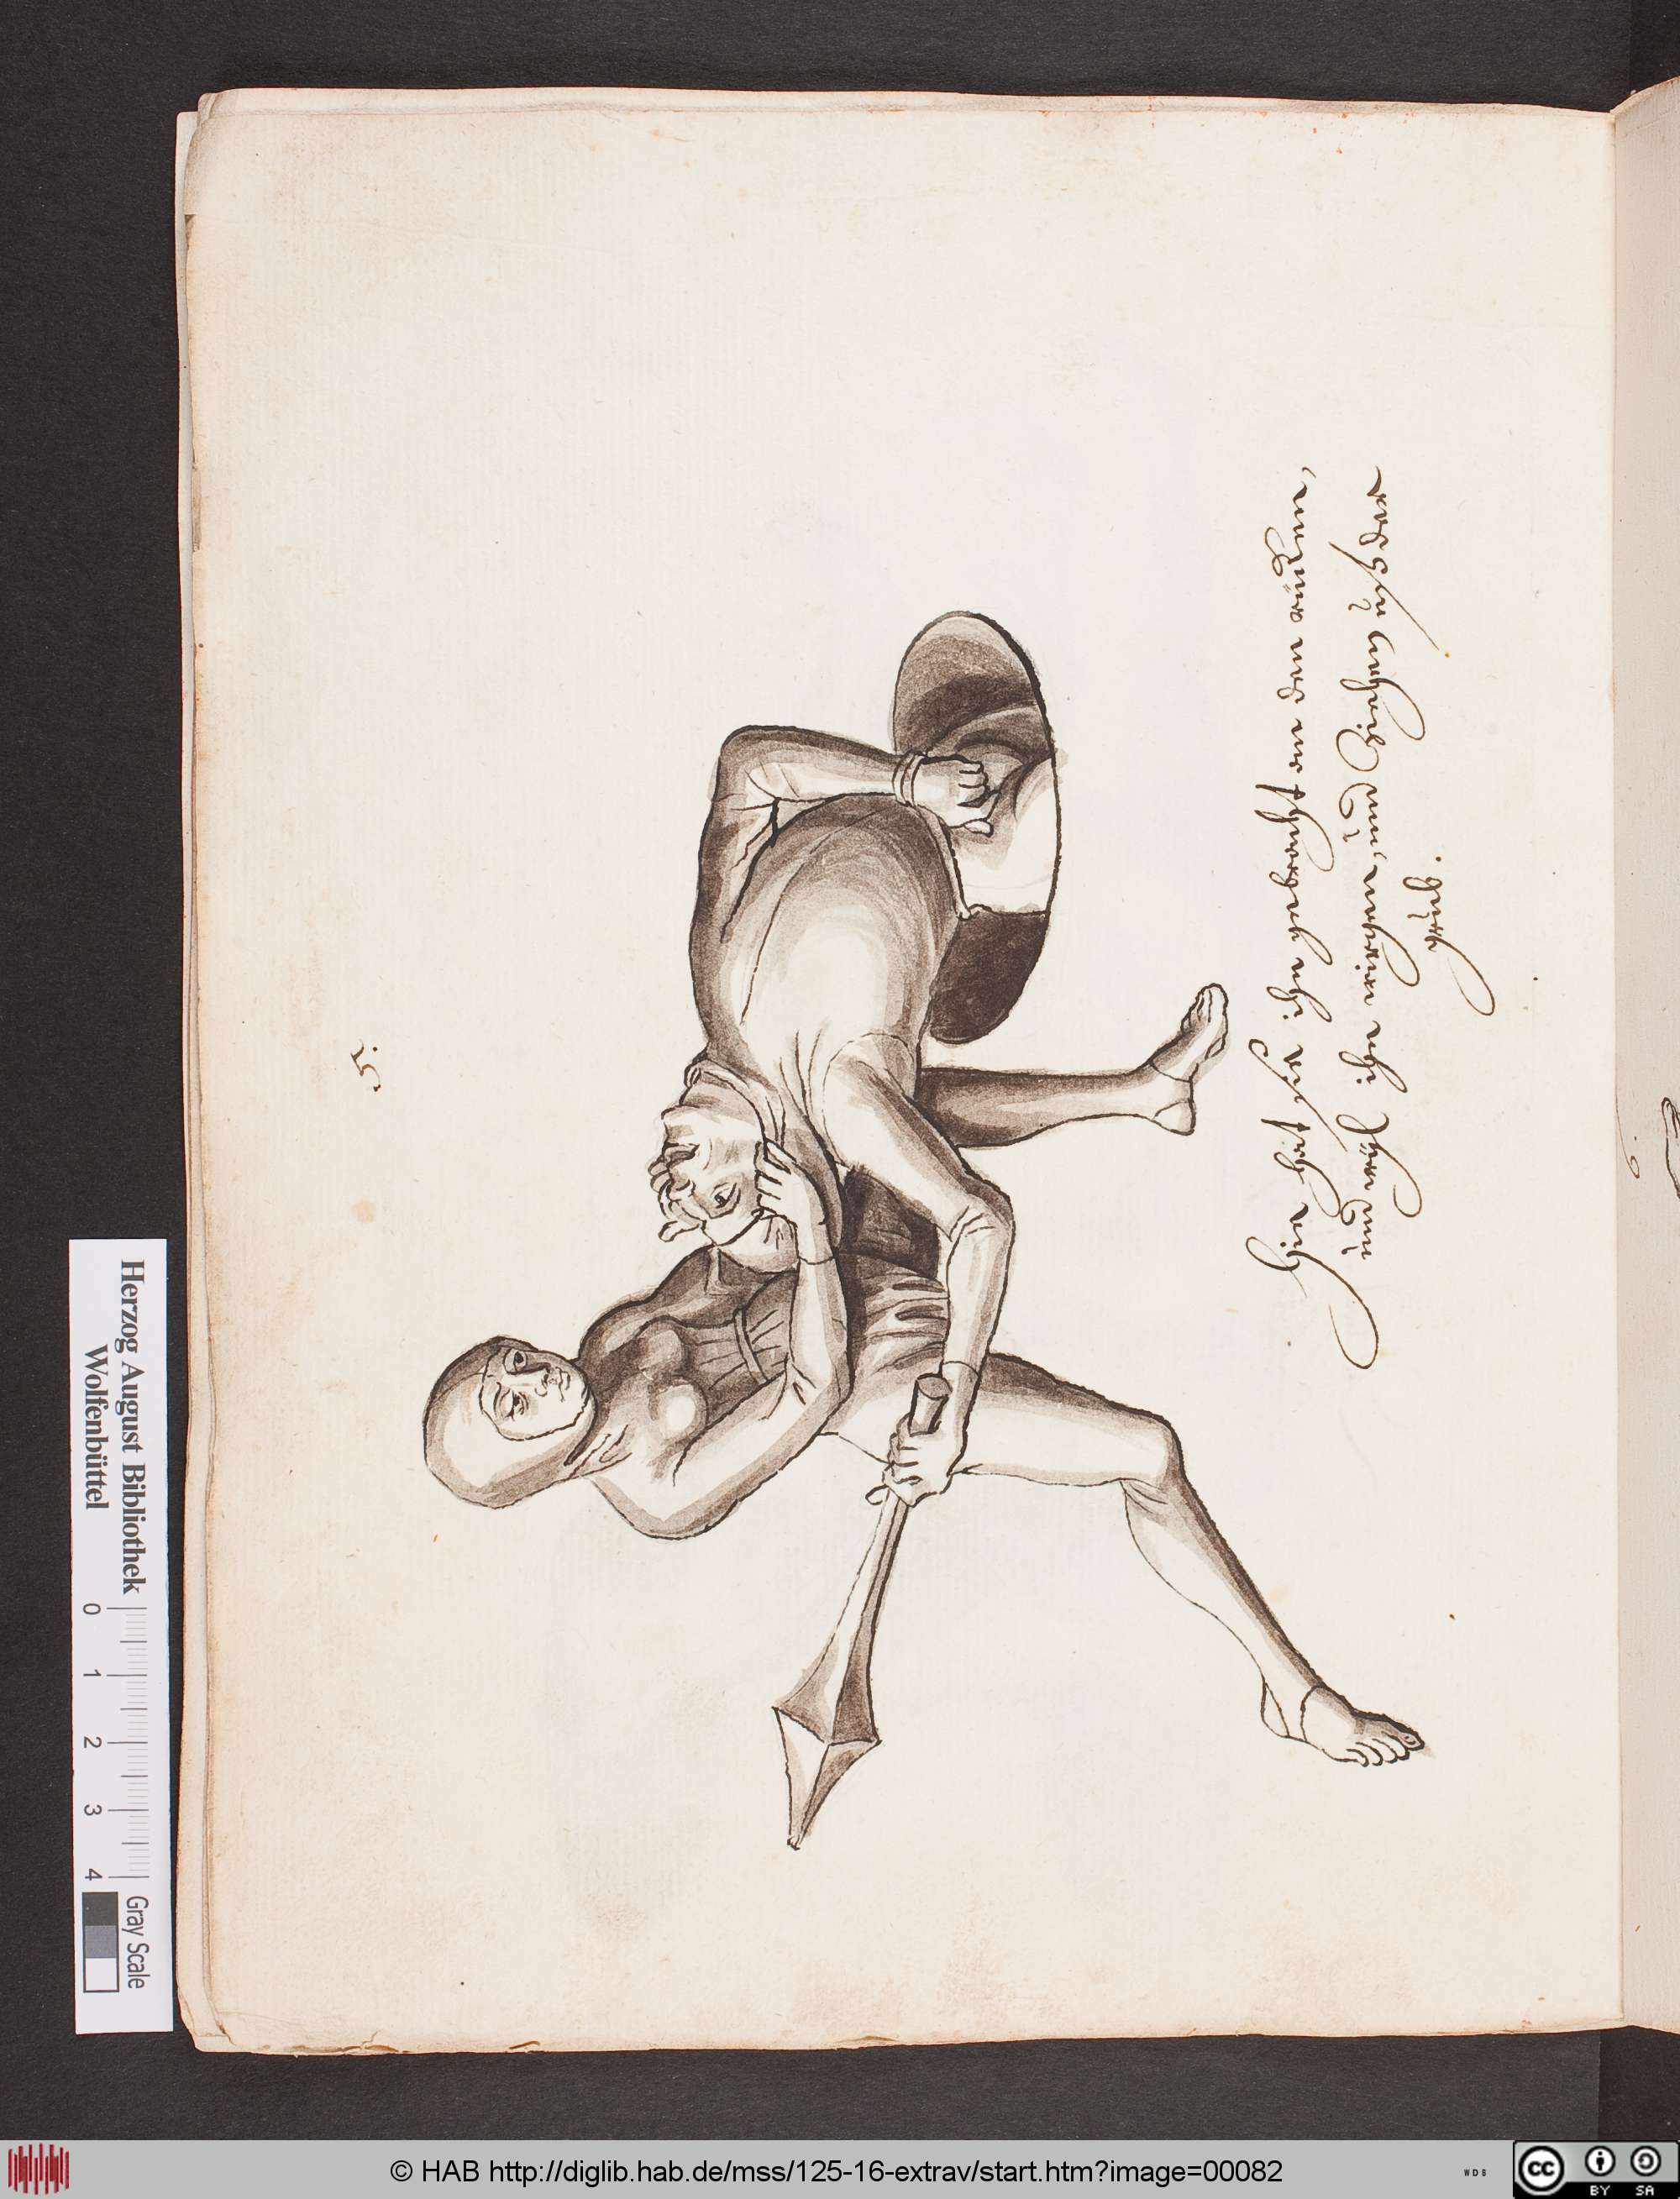 5.
Hie hat sie ihn gebracht an den rucken,
und will ihn würgen, und Ziehen uß der
grub.
Herzog August Bibliothek
Wolfenbüttel
0 1 2 3 4
Gray Scale
© HAB http://diglib.hab.de/mss/125-16-extrav/start.htm?image=00082
WDB
cc
BY SA